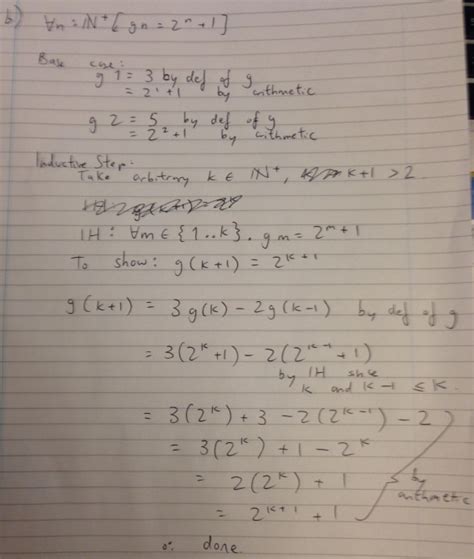 b) ∀n : ℕ⁺ [ g n = 2ⁿ + 1 ]
Base case:
g 1 = 3 by def of g
= 2¹ + 1 by arithmetic
g 2 = 5 by def of g
= 2² + 1 by arithmetic
Inductive Step:
Take arbitrary k ∈ ℕ⁺, k+1 > 2
IH : ∀m ∈ {1..k} . g m = 2ᵐ + 1
To show: g(k+1) = 2ᵏ⁺¹
g(k+1) = 3g(k) - 2g(k-1) by def of g
= 3(2ᵏ+1) - 2(2ᵏ⁻¹+1)
by IH since
k and k-1 ≤ k.
= 3(2ᵏ) + 3 - 2(2ᵏ⁻¹) - 2
= 3(2ᵏ) + 1 - 2ᵏ
= 2(2ᵏ) + 1 by
arithmetic
= 2ᵏ⁺¹ + 1
∴ done